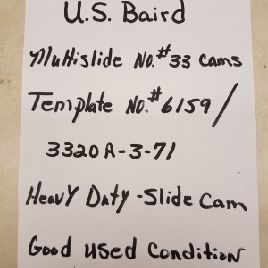 U.S. Baird
Multislide No.# 33 cams
Template No.# 6159/
3320A-3-71
Heavy Duty-Slide Cam
Good used Condition